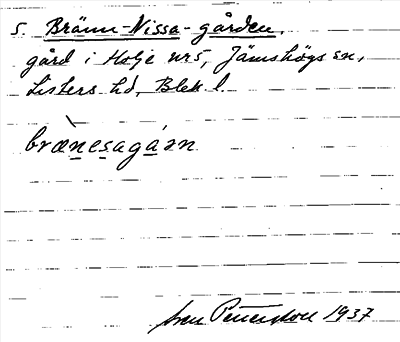 5. Bränn-Nissa-gården,
gård i Holje nr5, Jämshögs sn,
Listers hd, Blek l.
brænesagárn
Sven Petersson 1937